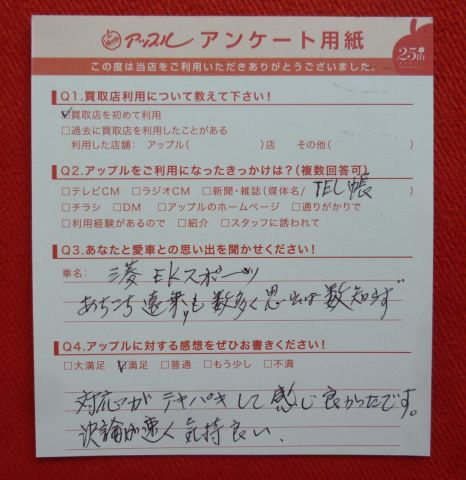 アップル アンケート用紙
25th
この度は当店をご利用いただきありがとうございました。
Q1.買取店利用について教えて下さい!
☑買取店を初めて利用
□過去に買取店を利用したことがある
利用した店舗: アップル( )店 その他( )
Q2.アップルをご利用になったきっかけは?(複数回答可)
□テレビCM □ラジオCM □新聞・雑誌(媒体名/ TEL帳 )
□チラシ □DM □アップルのホームページ □通りがかりで
□利用経験があるので □紹介 □スタッフに誘われて
Q3.あなたと愛車との思い出を聞かせてください!
車名: 三菱 EKスポーツ
あちこち遠乗りも数多く思出は数知らず
Q4.アップルに対する感想をぜひお書きください!
□大満足 ☑満足 □普通 □もう少し □不満
対応がテキパキして感じ良かったです。
決論が速く気持良い、